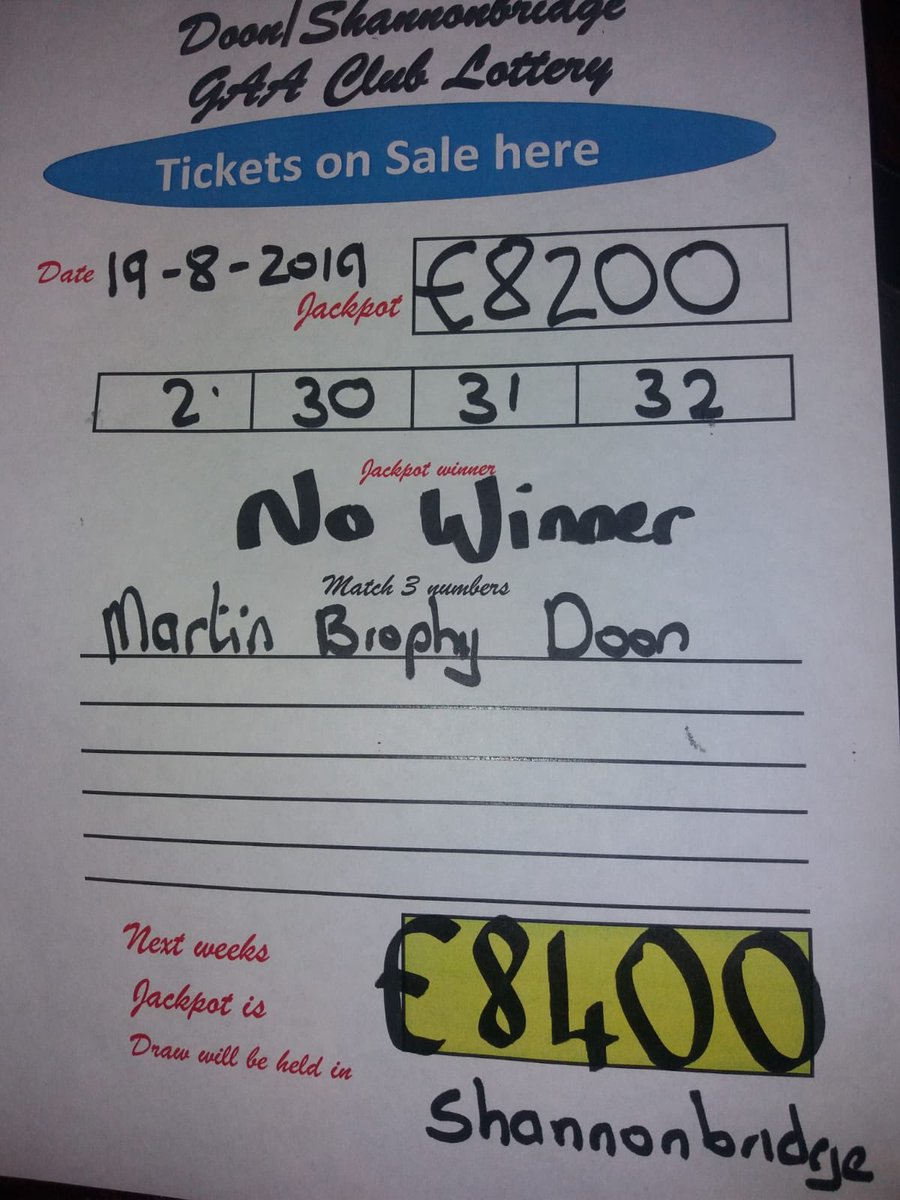 Doon/Shannonbridge
GAA Club Lottery
Tickets on Sale here
Date 19-8-2019
Jackpot €8200
2 30 31 32
Jackpot winner
No Winner
Match 3 numbers
Martin Brophy Doon
Next weeks
Jackpot is €8400
Draw will be held in
Shannonbridge